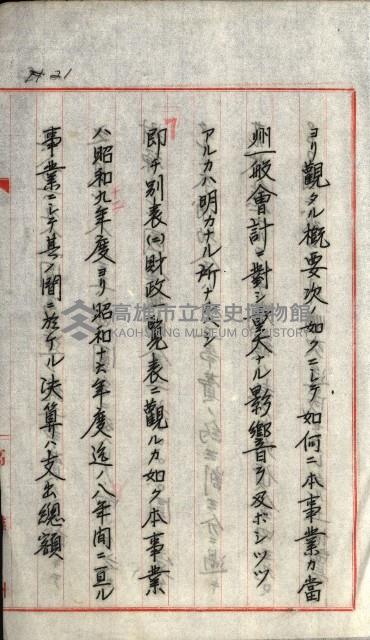 A 21
ヨリ觀タル概要次ノ如クニシテ如何ニ本事業カ當
州一般會計ニ對シ莫大ナル影響ヲ及ボシツツ
アルカハ明カナル所ナルベシ
即チ別表(二)財政一覽表ニ觀ルカ如ク本事業
ハ昭和九年度ヨリ昭和十六年度迄ノ八年間ニ亘ル
事業ニシテ其ノ間ニ於ケル決算ハ支出總額
高雄市立歷史博物館
KAOHSIUNG MUSEUM OF HISTORY